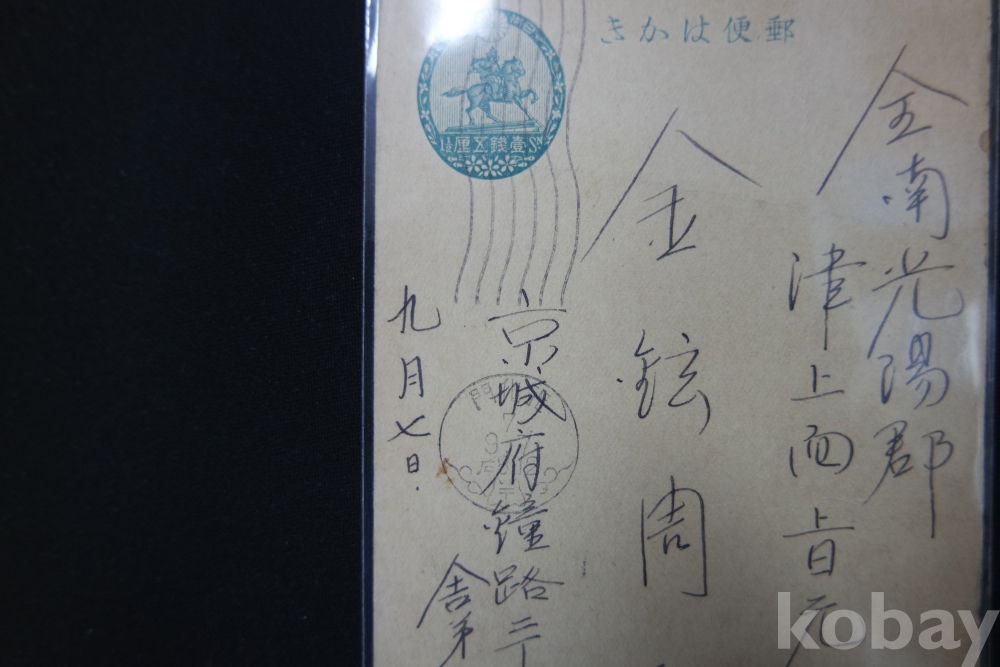 郵便はかき
壹錢五厘
1½Sɴ
全南光陽郡
津上面旨元
金鉉周
京城府鐘路二
舍弟
九月七日
kobay